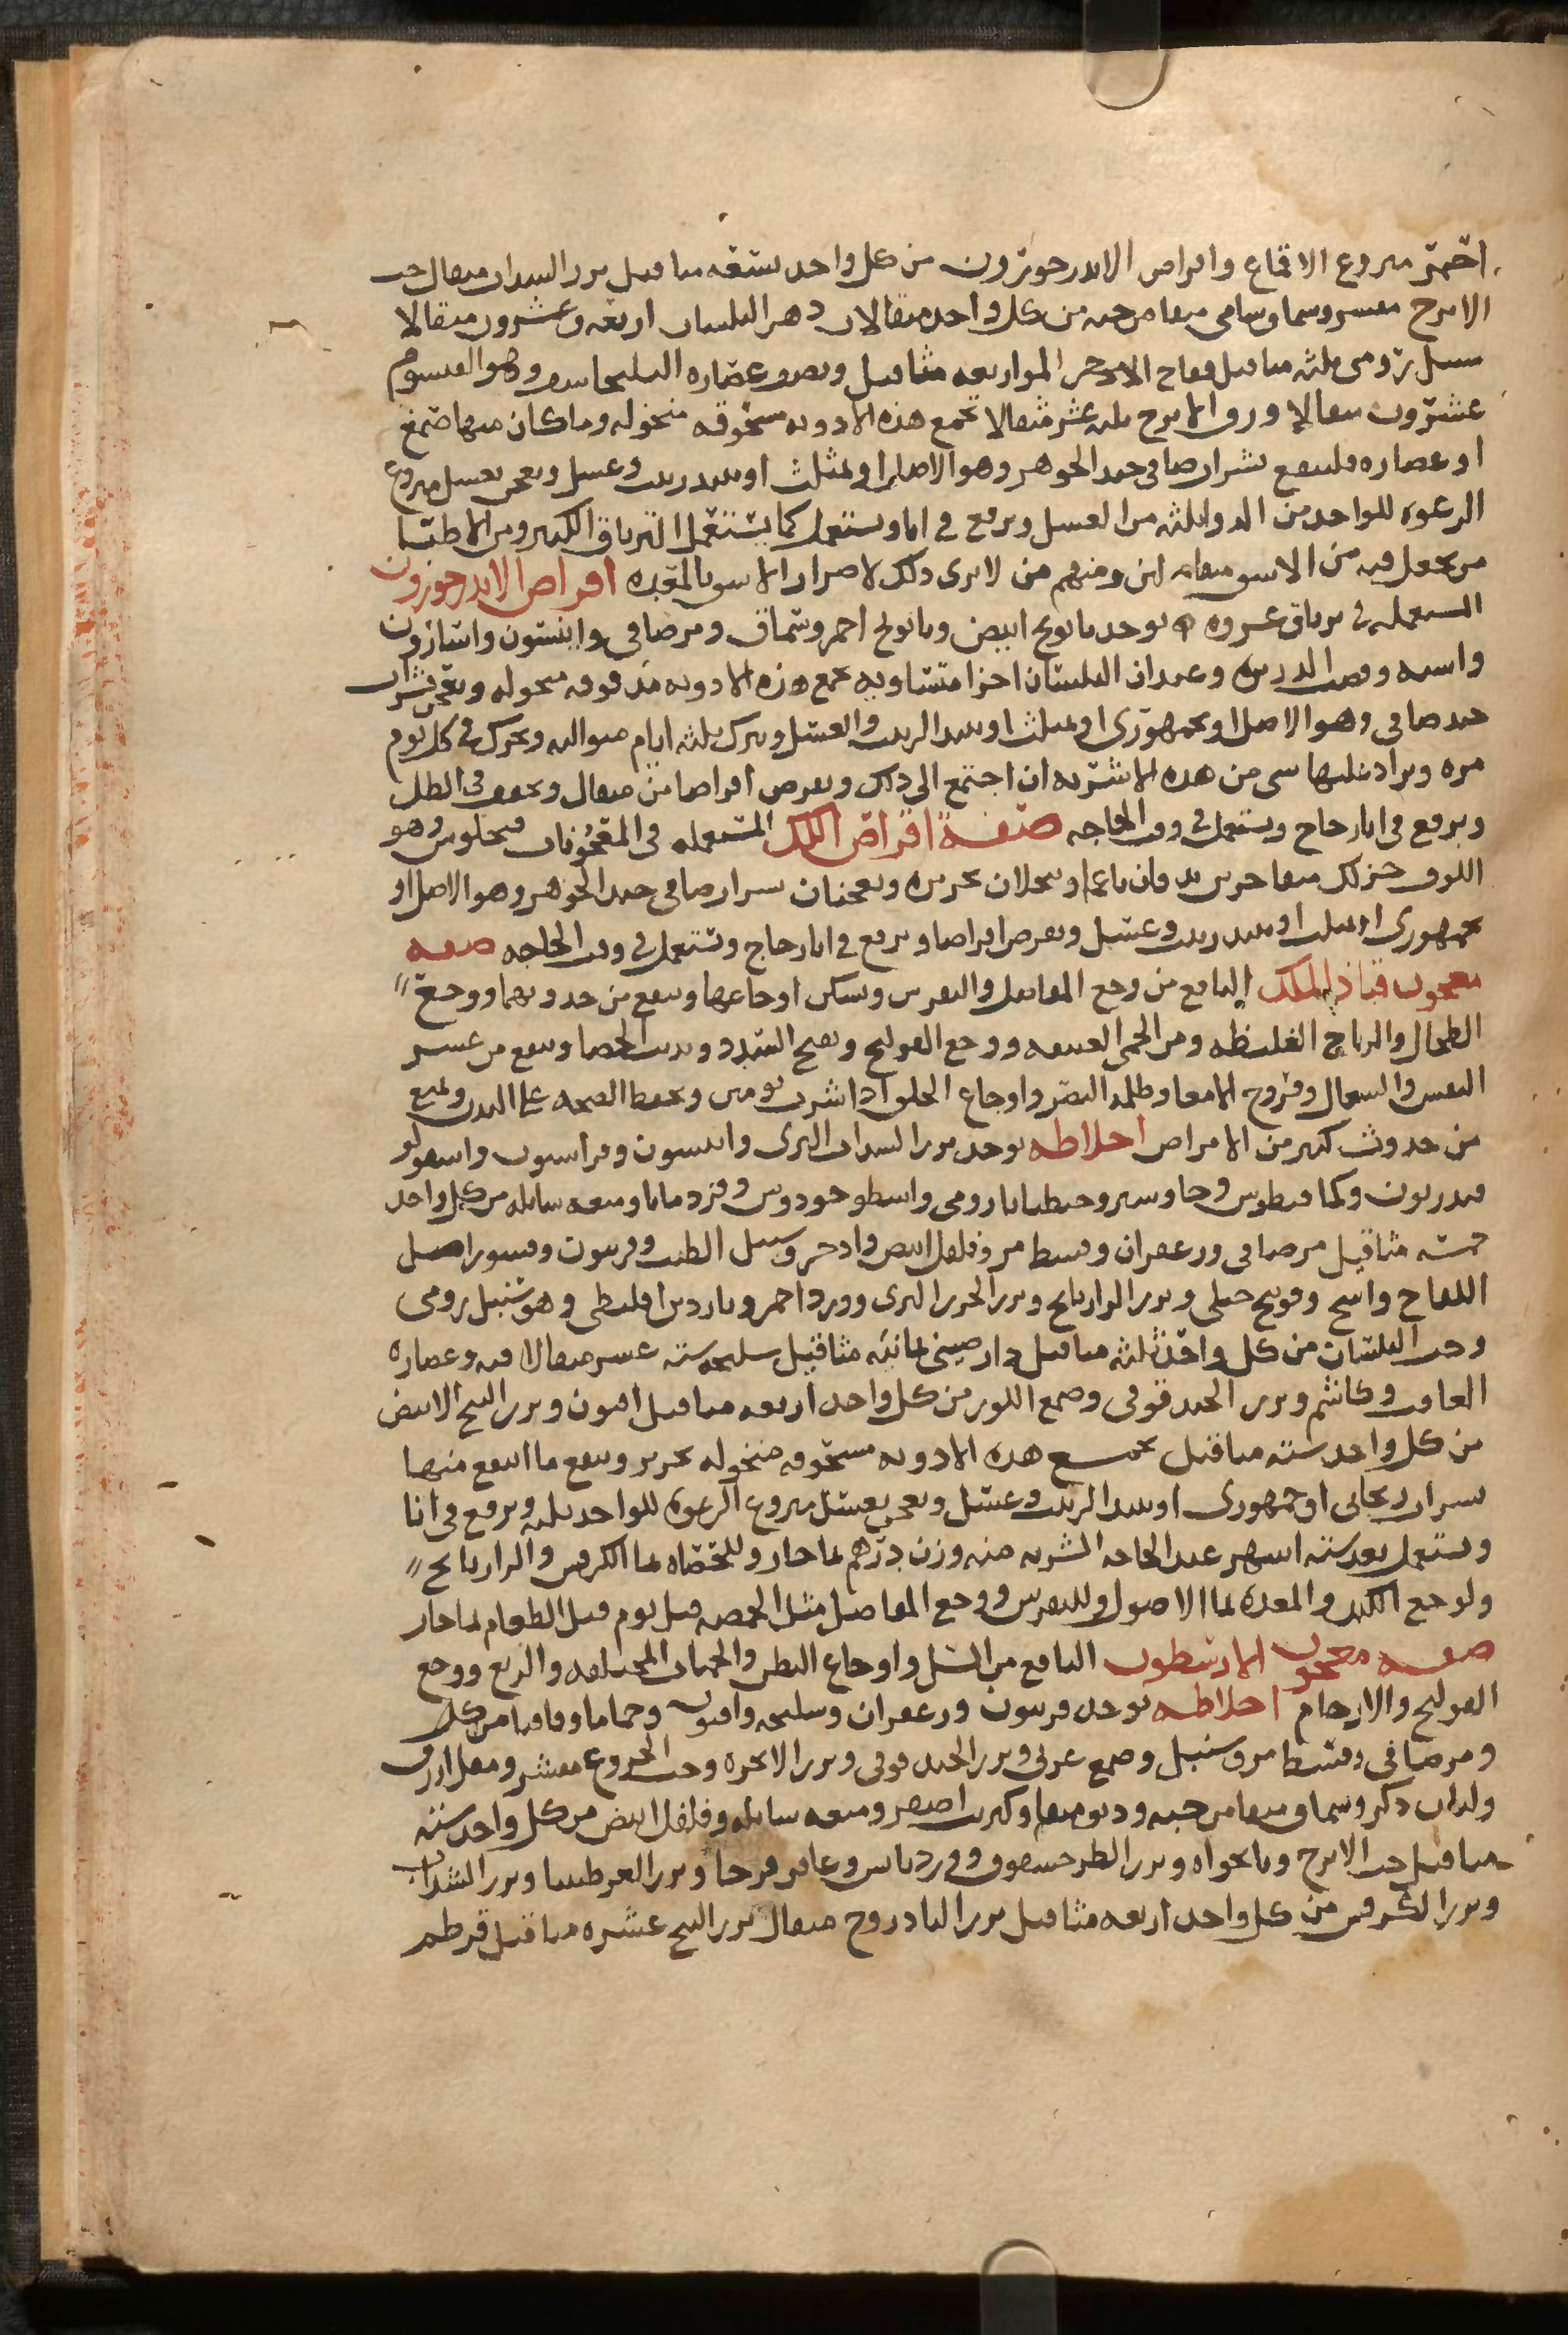 احمر منزوع الاقماع واقراص الاندرخوزون من كل واحد تسعه مثاقيل بزر السداب مثقال حب
الاترج مقشر وسماق شامى منقا من حبه من كل واحد مثقالان دهن البلسان اربعه وعشرون مثقالا
سنبل رومى ثلثه مثاقيل فقاح الاذخر المر اربعه مثاقيل ونصف عصاره وهو القيسوم
عشرون مثقالا ورق الاترج ثلثه عشر مثقالا تجمع هذه الادويه مسحوقه منخوله وما كان منها صمغ
او عصاره فلينقع بشراب صافى جيد الجوهر وهو الاصل او بمثلث او بنبيذ زبيب وعسل ويعجن بعسل منزوع
الرغوه للواحد من الدوا ثلثه من العسل ويرفع فى انا ويستعمل كما يستعمل الترياق الكبير ومن الاطبا
من يجعل فيه من الافيون ومنهم من لا يرى ذلك لاضرار الافيون بالمعده اقراص الاندرخوزون
المستعمله فى ترياق عزره يوخذ بابونج ابيض وبابونج احمر وسماق ومر صافى وانيسون واسارون
واشنه وقصب الذريره وعيدان البلسان اجزا متساويه تجمع هذه الادويه مدقوقه منخوله وتعجن بشراب
جيد صافى وهو الاصل او بجمهورى او بمثلث او بنبيذ الزبيب والعسل ويترك ثلثه ايام متواليه ويحرك فى كل يوم
مره ويزاد عليها شى من هذه الاشربه ان احتيج الى ذلك ويقرص اقراصا من مثقال ويجفف فى الظل
ويرفع فى انا زجاج ويستعمل فى وقت الحاجه صفة اقراص اللك المستعمله فى المعجونات وهو
اللوف جز لك منقا جزين يدقان ناعما وينخلان بحريره ويعجنان بشراب صافى جيد الجوهر وهو الاصل او
بجمهورى او بمثلث او بنبيذ زبيب وعسل ويقرص اقراصا ويرفع فى انا زجاج ويستعمل فى وقت الحاجه صفه
معجون قباذ الملك النافع من وجع المفاصل والنقرس ويسكن اوجاعها وينفع من حدوثهما ووجع
الطحال والرياح الغليظه ومن الحمى العتيقه ووجع القولنج ويفتح السدد ويذيب الحصا وينفع من عسر
النفس والسعال وقروح الامعا وظلمه البصر واوجاع الحلق اذا شرب يومين ويحفظ الصحه على البدن ويمنع
من حدوث كثير من الامراض اخلاطه يوخذ بزر السداب البرى وانيسون وفراسيون واسقولو
قندريون وكمافيطوس وجاوشير وجنطيانا رومى واسطوخودوس وقردمانا وميعه سايله من كل واحد
خمسه مثاقيل مر صافى وزعفران وقسط مر وفلفل ابيض واذخر وسنبل الطيب وفربيون وقشور اصل
اللفاح واشج وفوتنج جبلى وبزر الرازيانج وبزر الجزر البرى وورد احمر وناردين اقليطى وهو سنبل رومى
وحب البلسان من كل واحد ثلثه مثاقيل دار صينى ثمانيه مثاقيل سليخه سته عشر مثقالا وعصاره
الغافت وكاشم وبزر الحندقوقى وصمغ اللوز من كل واحد اربعه مثاقيل افيون وبزر البنج الابيض
من كل واحد سته مثاقيل تجمع هذه الادويه مسحوقه منخوله بحرير وينقع ما انتقع منها
بشراب ريحانى او جمهورى او بنبيذ الزبيب وعسل ويعجن بعسل منزوع الرغوه للواحد ثلثه ويرفع فى انا
ويستعمل بعد سته اشهر عند الحاجه الشربه منه وزن درهم بما حار وللحصاه بما الكرفس والرازيانج
ولوجع الكبد والمعده بما الاصول وللنقرس ووجع المفاصل مثل الحمصه قبل يوم قبل الطعام بما حار
صفه معجون النافع من السل واوجاع البطن والحميات المختلفه والربع ووجع
القولنج والارحام اخلاطه يوخذ فربيون وزعفران وسليخه وافيون وحماما وقاقيا من كل
ومر صافى وقسط مر وسنبل وصمغ عربى وبزر الحندقوقى وبزر الانجره وحب الخروع مقشر ومقل ازرق
ولبان ذكر وسماق منقا من حبه وكبريت اصفر وميعه سايله وفلفل ابيض من كل واحد سته
مثاقيل حب الاترج ونانخواه وبزر وعاقر قرحا وبزر وبزر السداب
وبزر الكرفس من كل واحد اربعه مثاقيل بزر الباذروج مثقال بزر البنج عشره مثاقيل قرطم